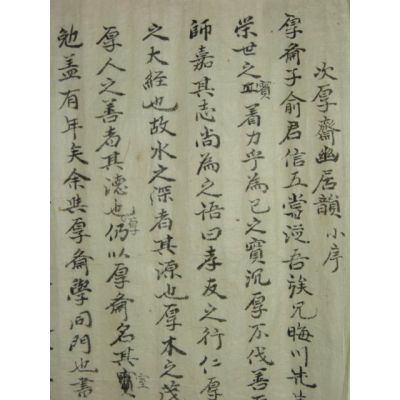 次厚齋幽居韻 小序
厚齋子俞君信五嘗從吾族兄晦川先
榮世之實着力乎爲己之實沉厚不伐善
師嘉其志尚為之語曰孝友之行仁厚
之大経也故水之深者其源也厚木之茂
厚人之善者其德也厚仍以厚齋名其室
勉盖有年矣余與厚齋學同門也書